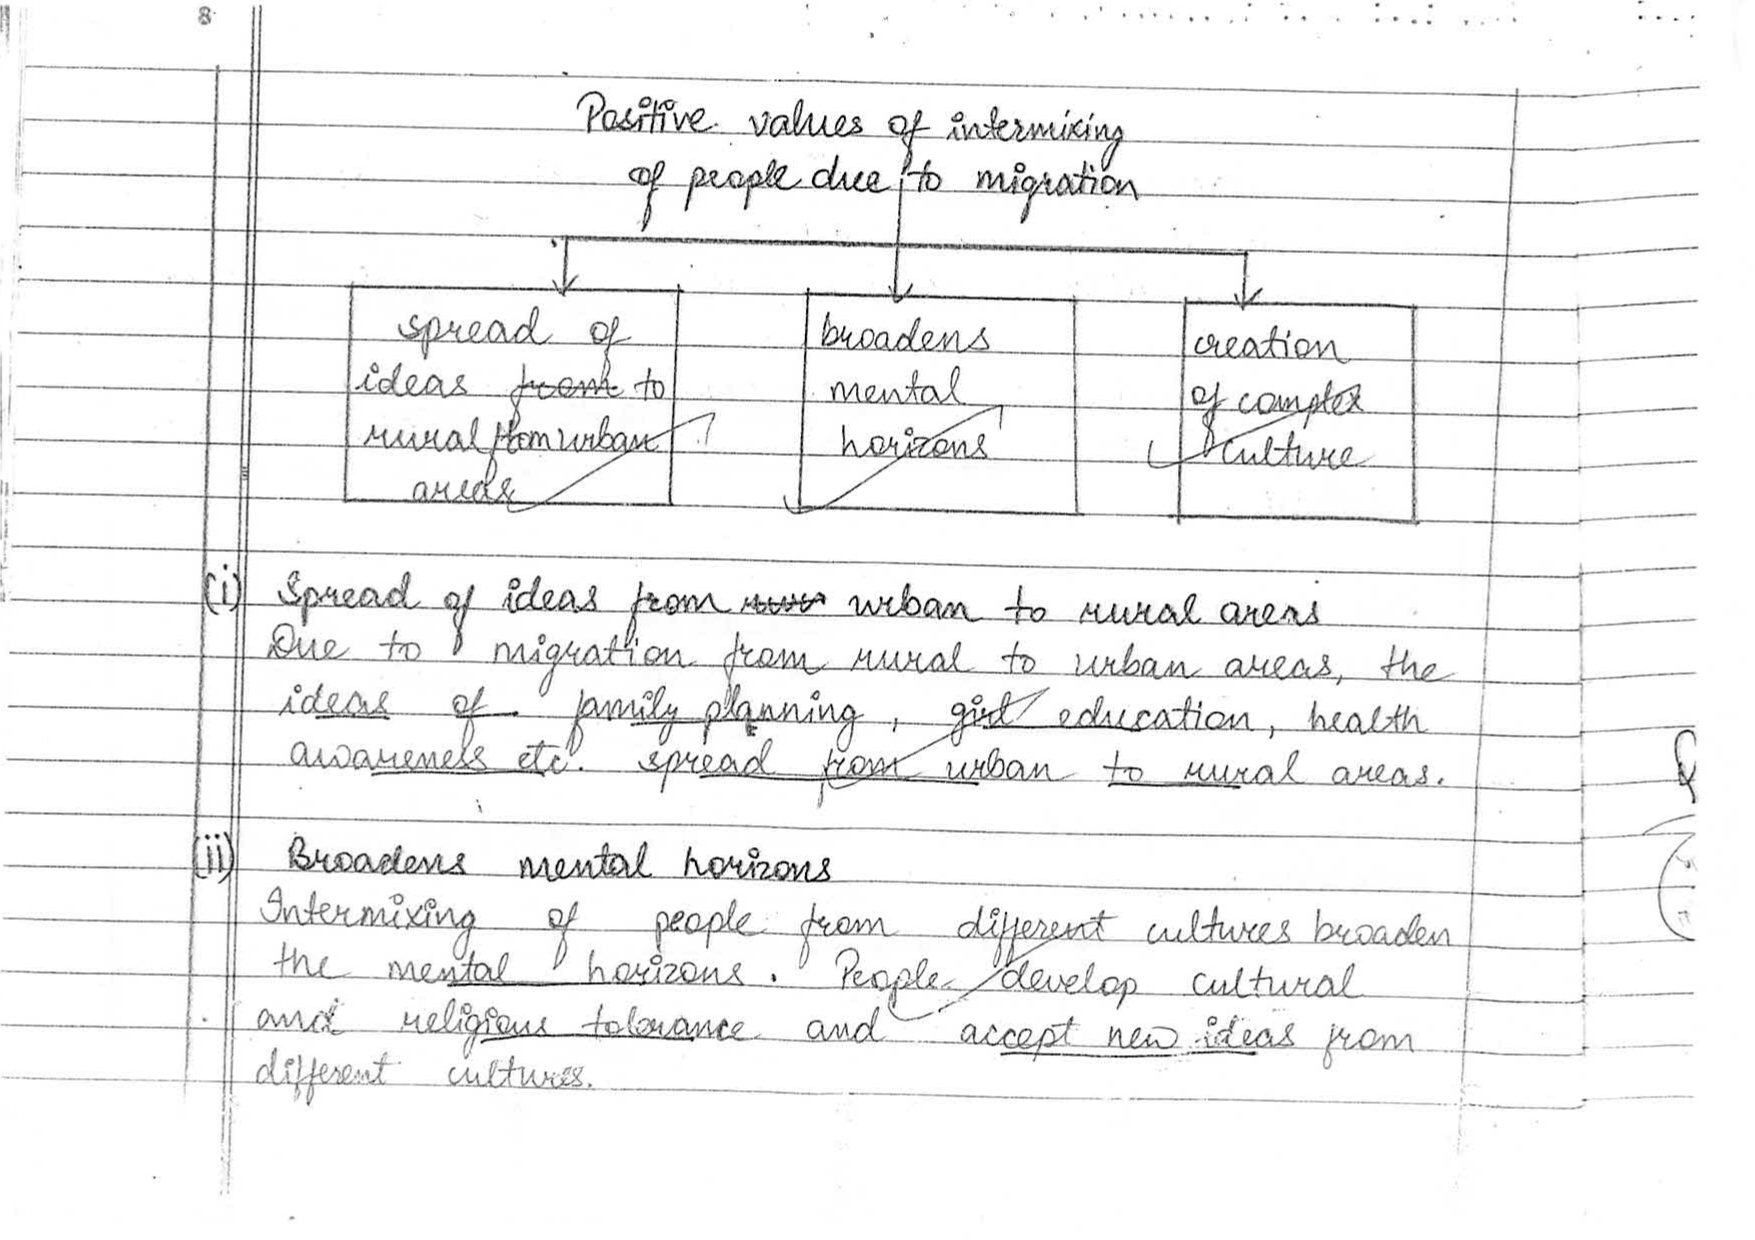 8
Positive values of intermixing
of people due to migration
spread of
ideas from to
rural from urban
areas
broadens
mental
horizons
creation
of complex
culture
(i) Spread of ideas from urban to rural areas
Due to migration from rural to urban areas, the
ideas of family planning, girl education, health
awareness etc. spread from urban to rural areas.
(ii) Broadens mental horizons
Intermixing of people from different cultures broaden
the mental horizons. People develop cultural
and religious tolerance and accept new ideas from
different cultures.